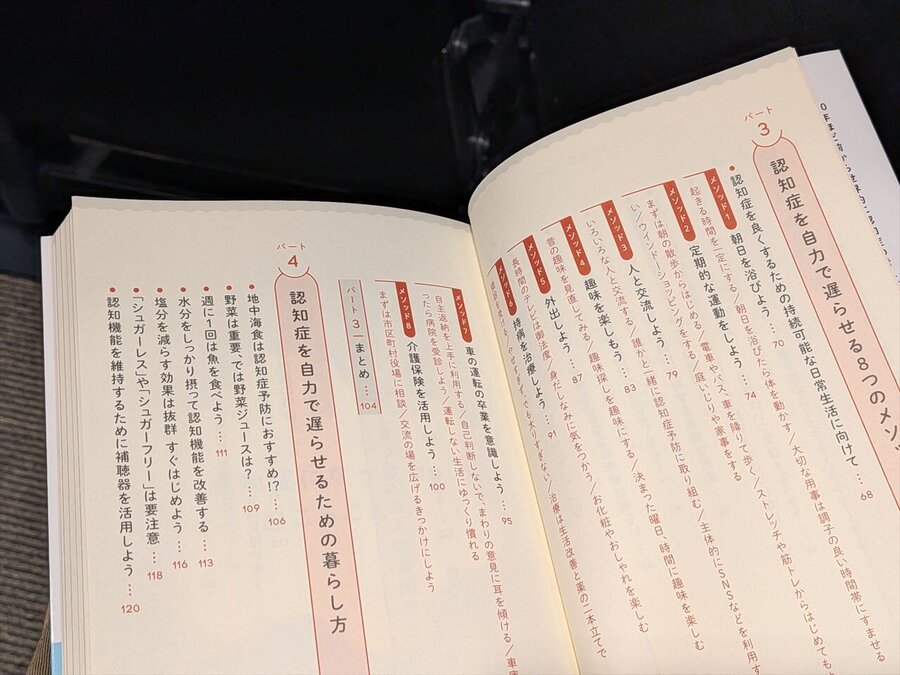 パート
3
認知症を自力で遅らせる8つのメソッ
認知症を良くするための持続可能な日常生活に向けて … 68
メソッド1 朝日を浴びよう … 70
起きる時間を一定にする/朝日を浴びたら体を動かす/大切な用事は調子の良い時間帯にすませる
メソッド2 定期的な運動をしよう … 74
まずは朝の散歩からはじめる/電車やバス、車を降りて歩く/ストレッチや筋トレからはじめても
い/ウインドーショッピングをする/庭いじりや家事をする
メソッド3 人と交流しよう … 79
いろいろな人と交流する/誰かと一緒に認知症予防に取り組む/主体的にSNSなどを利用す
メソッド4 趣味を楽しもう … 83
昔の趣味を見直してみる/趣味探しを趣味にする/決まった曜日、時間に趣味を楽しむ
メソッド5 外出しよう … 87
長時間のテレビは御法度/身だしなみに気をつかう/お化粧やおしゃれを楽しむ
メソッド6 持病を治療しよう … 91
やせすぎず太りすぎない/治療は生活改善と薬の二本立てで
メソッド7 車の運転の卒業を意識しよう … 95
自主返納を上手に利用する/自己判断しないで、まわりの意見に耳を傾ける/車庫
ったら病院を受診しよう/運転しない生活にゆっくり慣れる
メソッド8 介護保険を活用しよう … 100
まずは市区町村役場に相談/交流の場を広げるきっかけにしよう
パート3―まとめ … 104
パート
4
認知症を自力で遅らせるための暮らし方
地中海食は認知症予防におすすめ!? … 106
野菜は重要、では野菜ジュースは? … 109
週に1回は魚を食べよう … 111
水分をしっかり摂って認知機能を改善する … 113
塩分を減らす効果は抜群 すぐはじめよう … 116
「シュガーレス」や「シュガーフリー」は要注意 … 118
認知機能を維持するために補聴器を活用しよう … 120